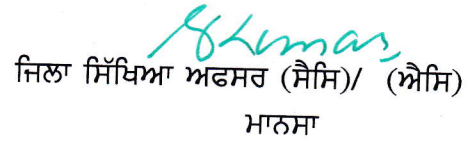 ਜਿਲਾ ਸਿੱਖਿਆ ਅਫਸਰ (ਸੈਸਿ)/ (ਐਸਿ)
ਮਾਨਸਾ